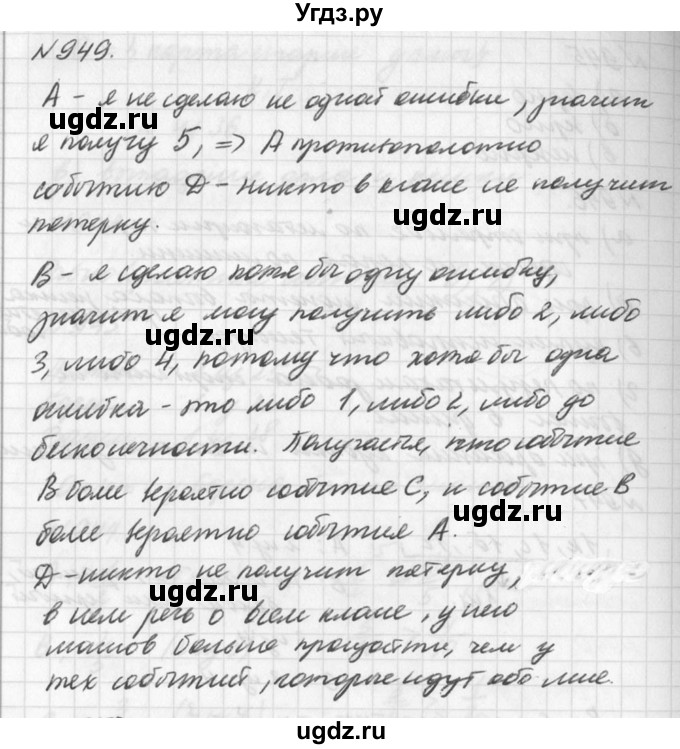 Угдз.ру
№949.
А - я не сделаю не одной ошибки, значит
я получу 5, => А противополотно
ugdz.ru
событию Д - никто в класе не получит
ugdz.ru
петерку.
В - я сделаю хотя бы одну ошибку,
значит я могу получить либо 2, либо
ugdz.ru
3, либо 4, потому что хотя бы одна
ошибка - это либо 1, либо 2, либо до
бесконечности. Получается, что событие
В боле вероятно событие С, и событие В
ugdz.ru
более вероятно события А.
Д - никто не получит петерку,
ugdz.ru
в нем речь о всем класе, у него
шансов больше произойти, чем у
тех событий, которые идут обо мне.
ugdz.ru
ugdz.ru